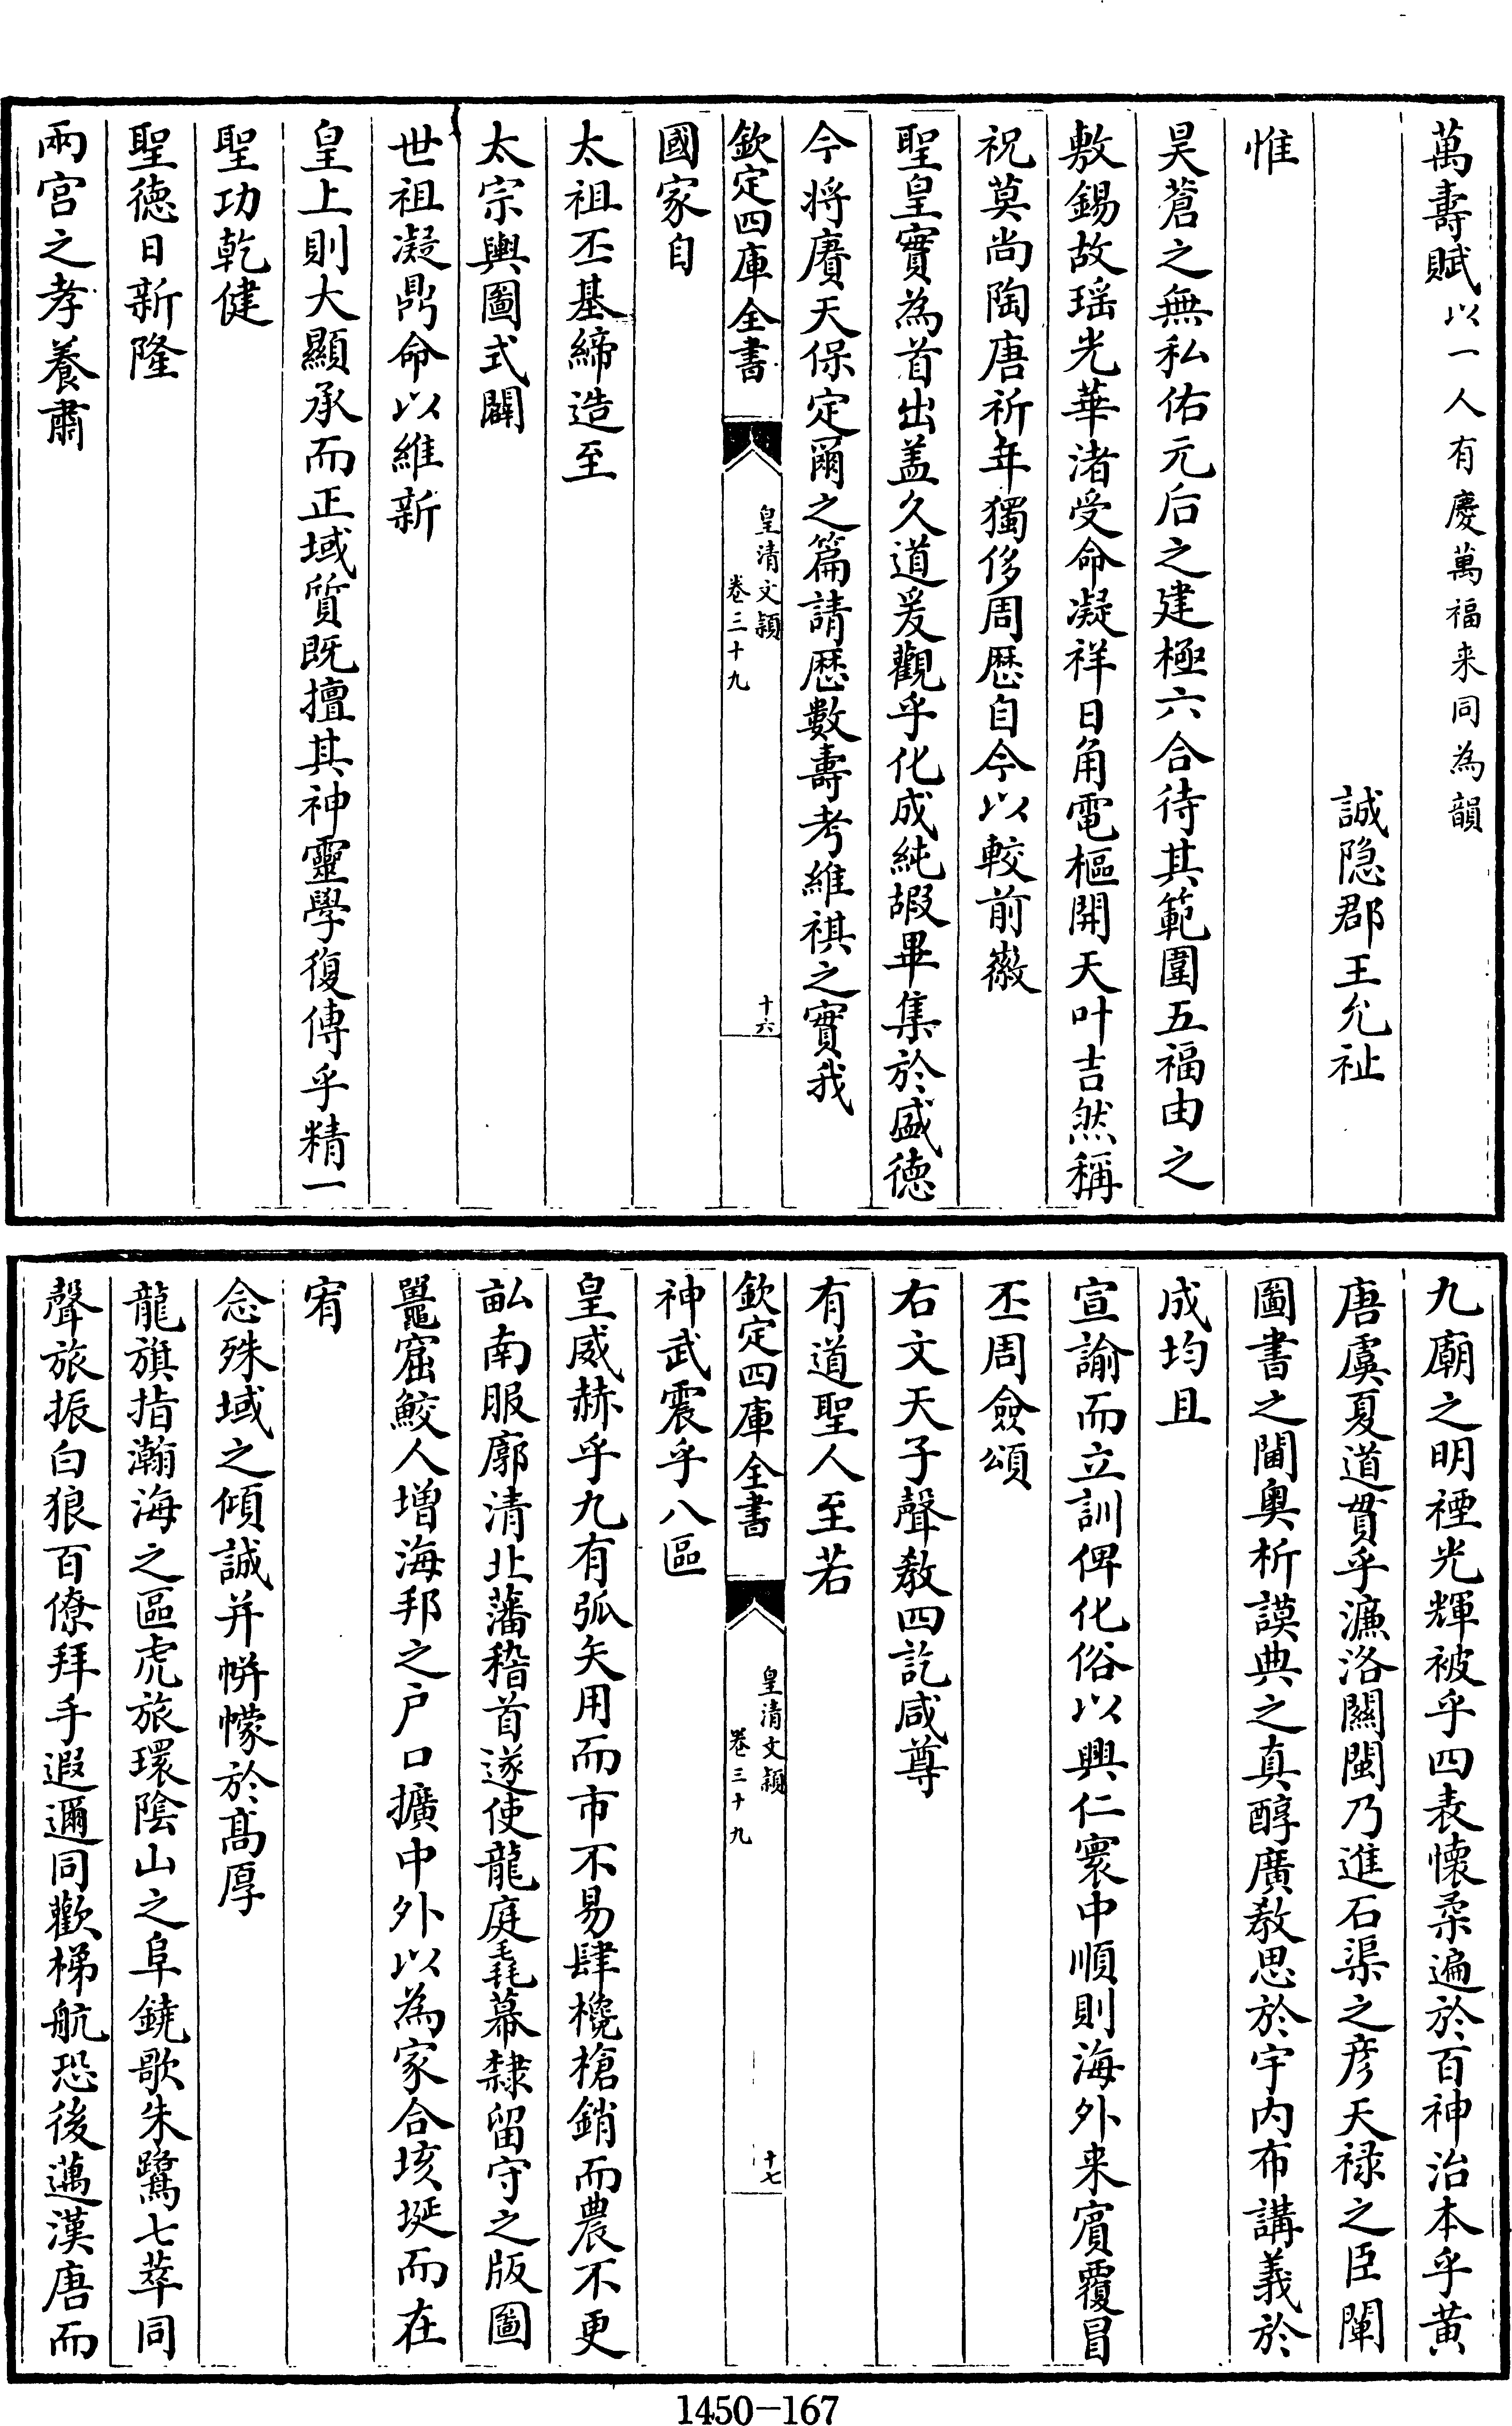 萬壽賦以一人有慶萬福来同為韻
誠隐郡王允祉
惟
昊蒼之無私佑元后之建極六合待其範圍五福由之
敷錫故瑶光華渚受命凝祥日角電樞開天叶吉然稱
祝莫尚陶唐祈年獨侈周厯自今以較前徽
聖皇實為首出盖久道爰觀乎化成純嘏畢集於盛德
今将賡天保定爾之篇請厯數壽考維祺之實我
欽定四庫全書
皇清文穎
卷三十九
十六
國家自
太祖丕基締造至
太宗輿圖式闢
世祖凝鼎命以維新
皇上則大顯承而正域質既擅其神靈學復傳乎精一
聖功乾健
聖德日新隆
兩宫之孝養肅
九廟之明禋光輝被乎四表懐柔遍於百神治本乎黄
唐虞夏道貫乎濂洛關閩乃進石渠之彦天禄之臣闡
圖書之閫奥析謨典之真醇廣教思於宇内布講義於
成均且
宣諭而立訓俾化俗以興仁寰中順則海外来賓覆冒
丕周僉頌
右文天子聲教四訖咸尊
有道聖人至若
欽定四庫全書
皇清文穎
卷三十九
十七
神武震乎八區
皇威赫乎九有弧矢用而市不易肆欃槍銷而農不更
畝南服廓清北藩稽首遂使龍庭毳幕隸留守之版圖
鼉窟鮫人增海邦之户口擴中外以為家合垓埏而在
宥
念殊域之傾誠并帡幪於高厚
龍旗指瀚海之區虎旅環陰山之阜鐃歌朱鷺七萃同
聲旅振白狼百僚拜手遐邇同歡梯航恐後邁漢唐而
1450-167